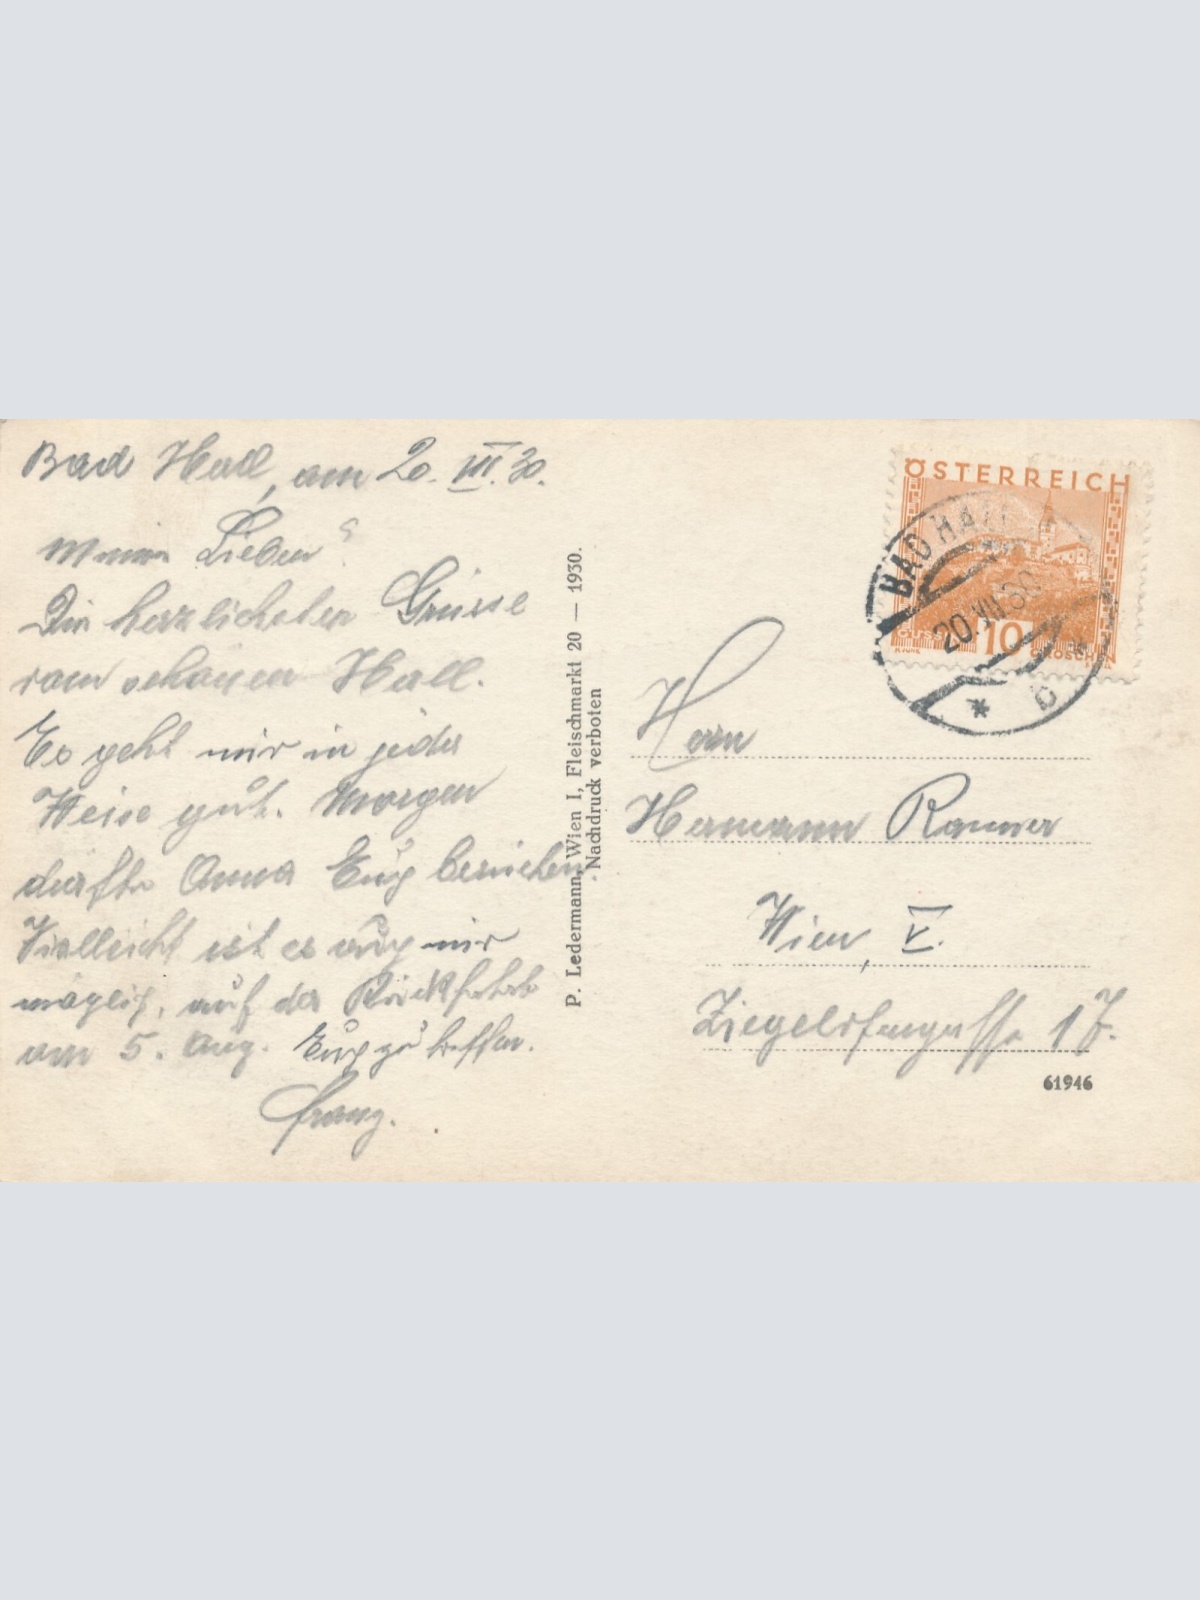 Bad Hall, am 20. VII. 30.
Meine Lieben!
Die herzlichsten Grüsse
vom schönen Hall.
Es geht mir in jeder
Weise gut. Morgen
dürfte Anna Euch besuchen.
Vielleicht ist es auch mir
möglich, auf der Rückfahrt
am 5. Aug. Euch zu treffen.
Franz.
P. Ledermann, Wien I, Fleischmarkt 20 — 1930.
Nachdruck verboten
ÖSTERREICH
10
GROSCHEN
BAD HALL
20.VII.30
* b *
Herrn
Hermann
Wien, V.
Ziegelofengasse 17.
61946